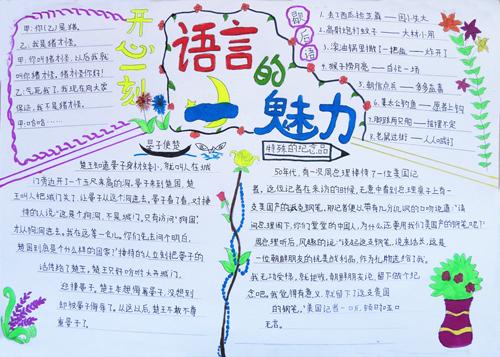 开心一刻
甲：你（乙）是猪。
乙：我是猪才怪。
甲：你叫猪才怪，以后我就
叫你猪才怪，猪才怪你好！
乙：气死我了，我现在向大家
保证，我不是猪才怪。
甲：哈哈……
语言的
魅力
歇后语
1、丢了西瓜捡芝麻——因小失大
2、高射炮打蚊子——大材小用
3、滚油锅里撒了一把盐——炸开了
4、猴子捞月亮——白忙一场
5、韩信点兵——多多益善
7、脚踩棒又脚——
8、老鼠过街——人人喊打
晏子使楚
楚王知道晏子身材矮小，就叫人在城
门旁边开了一个五尺来高的洞。晏子来到楚国，楚
王叫人把城门关了，让晏子从这个洞进去。晏子看了看，对接
待的人说：“这是个狗洞，不是城门。只有访问‘狗国’，
才从狗洞进去。我在这等一会儿。你们先去问个明白，
楚国到底是个什么样的国家？”接待的人立刻把晏子的
话传给了楚王。楚王只好吩咐大开城门，
迎接晏子。楚王本想侮辱晏子，没想到
却被晏子侮辱了。从这以后，楚王不敢不尊
重晏子了。
特殊的纪念品
50年代，有一次周总理接待了一位美国记
者，这位记者在采访的时候，无意中看到总理桌子上有一
支美国产的派克钢笔。那记者便以带有几分讥讽的口吻说道：“请
问总理阁下，你们堂堂的中国人，为什么还要用我们美国产的钢笔呢？”
周总理听后，风趣的说：“谈起这支钢笔，说来话长，这是
一位朝鲜朋友的抗美战利品，作为礼物送给了我。
我无功受禄，就拒收。朝鲜朋友说，留下做个纪
念吧。我觉得有意义，就留下了这支美国
的钢笔。”美国记者一听，顿时哑口
无言。